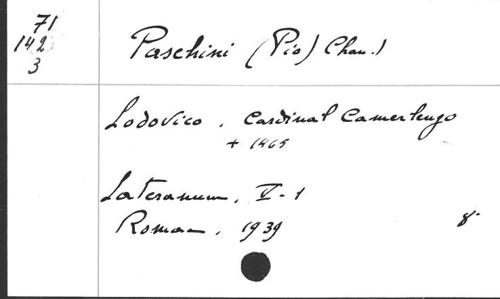 71
142
3
Paschini (Pio) Chan.)
Lodovico, Cardinal Camerlengo
+ 1465
Lateranum, V-1
Romae, 1939 8°